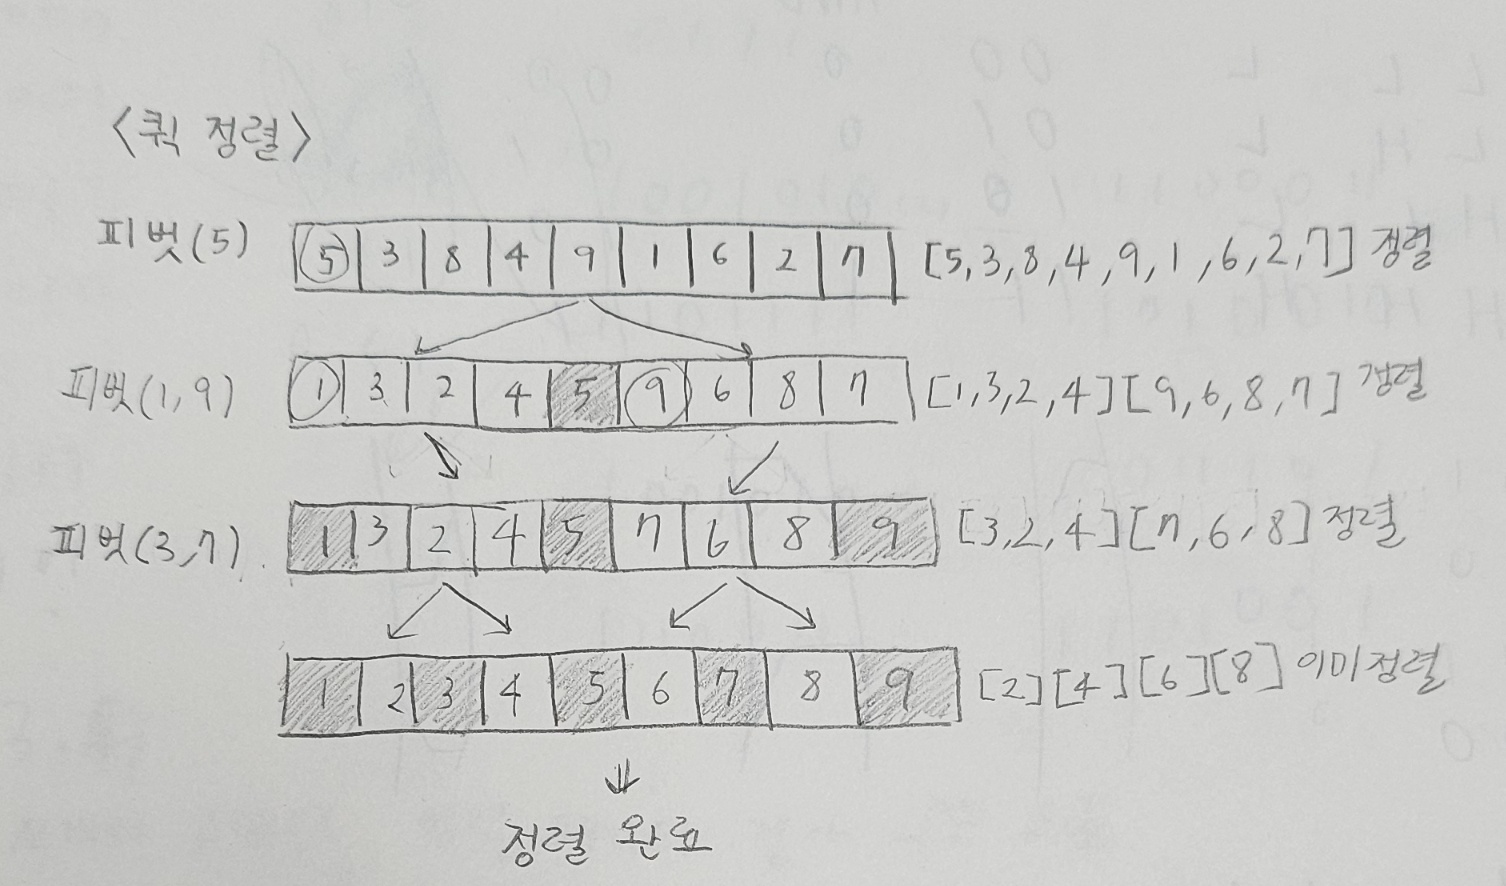 <퀵 정렬>
피벗(5) 5 3 8 4 9 1 6 2 7 [5,3,8,4,9,1,6,2,7] 정렬
피벗(1,9) 1 3 2 4 5 9 6 8 7 [1,3,2,4][9,6,8,7] 정렬
피벗(3,7) 1 3 2 4 5 7 6 8 9 [3,2,4][7,6,8] 정렬
1 2 3 4 5 6 7 8 9 [2][4][6][8] 이미정렬
정렬 완료